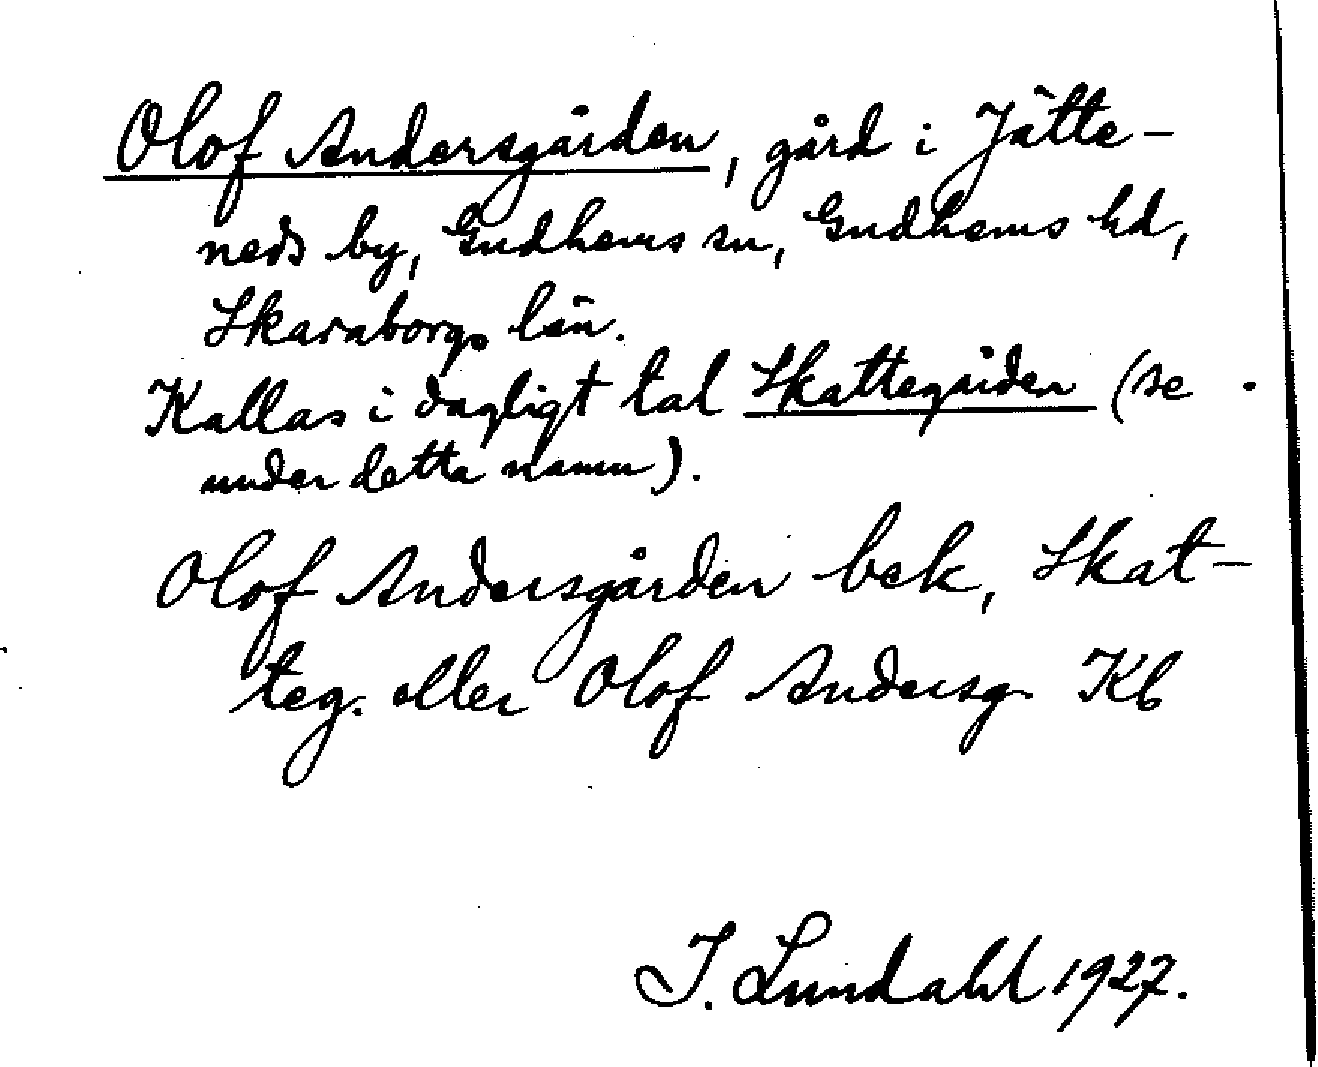 Olof Andersgården, gård i Jätte-
neds by, Gudhems sn, Gudhems hd,
Skaraborgs län.
Kallas i dagligt tal Skattegården (se
under detta namn).
Olof Andersgården bek, Skat-
teg. eller Olof Andersg. Kb
I. Lundahl 1927.